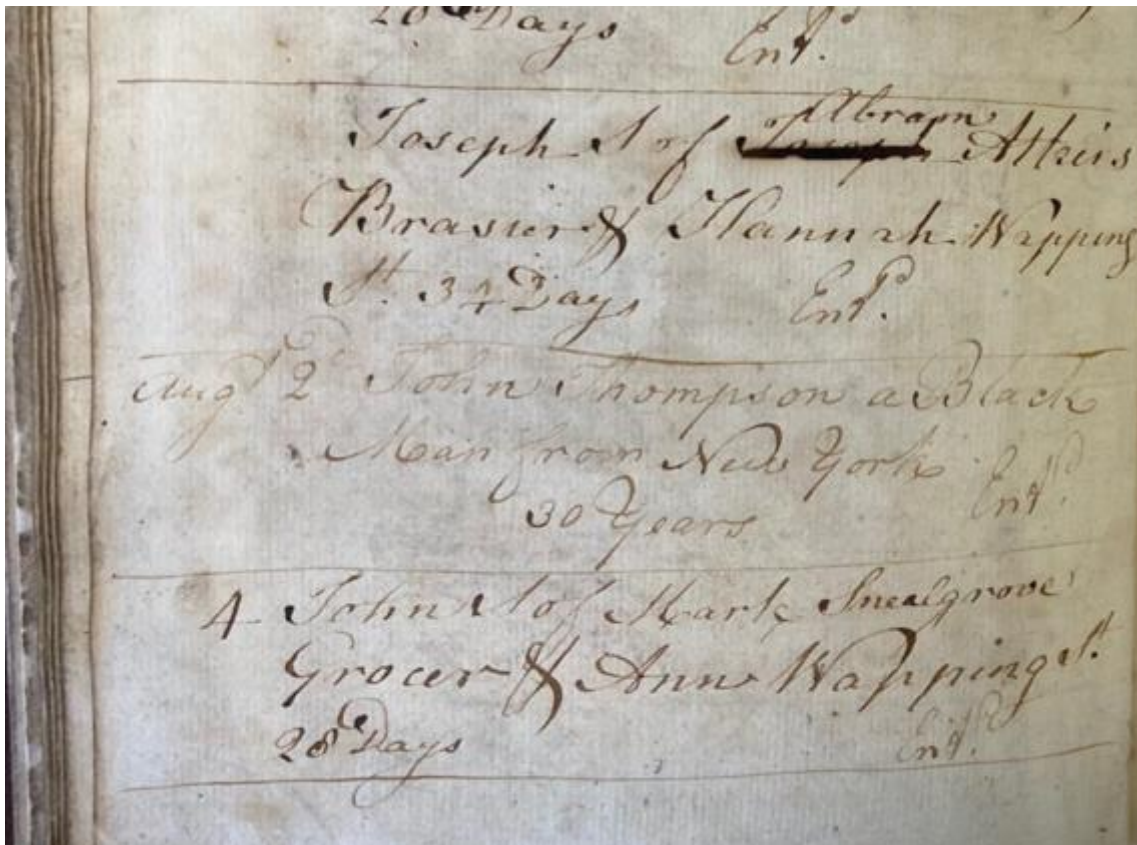 28 Days Entd.
Joseph S of Abram Joseph Atkins
Brasier & Hannah Wapping
St. 34 Days Entd.
Augt 2 John Thompson a Black
Man from New York
30 Years Entd.
4 John S of Mark Snealgrove
Grocer & Ann Wapping St.
28 Days Entd.